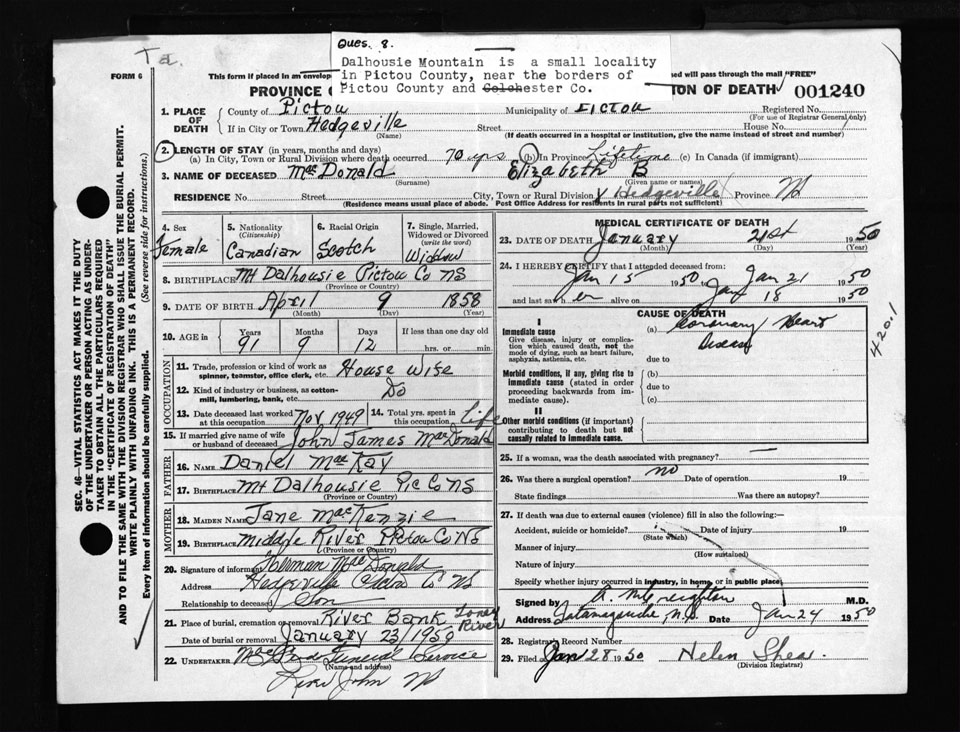 Ques. 8.
Dalhousie Mountain is a small locality
in Pictou County, near the borders of
Pictou County and Colchester Co.
FORM 6
This form if placed in an envelope
sed will pass through the mail "FREE"
PROVINCE
ION OF DEATH
001240
1. PLACE OF DEATH
County of Pictou
Municipality of Pictou
Registered No.
(For use of Registrar General only)
If in City or Town Hedgeville
(Name)
Street
House No.
(If death occurred in a hospital or institution, give the name instead of street and number)
2. LENGTH OF STAY (in years, months and days)
(a) In City, Town or Rural Division where death occurred 70 yrs (b) In Province Lifetime (c) In Canada (if immigrant)
3. NAME OF DECEASED MacDonald
(Surname)
Elizabeth B
(Given name or names)
RESIDENCE No. Street City, Town or Rural Division Hedgeville Province NS
(Residence means usual place of abode. Post Office Address for residents in rural parts not sufficient)
4. Sex
Female
5. Nationality
(Citizenship)
Canadian
6. Racial Origin
Scotch
7. Single, Married,
Widowed or Divorced
(write the word)
Widow
8. BIRTHPLACE Mt Dalhousie Pictou Co NS
(Province or Country)
9. DATE OF BIRTH April 9 1858
(Month) (Day) (Year)
10. AGE in
Years Months Days If less than one day old
91 9 12 hrs. or min.
OCCUPATION
11. Trade, profession or kind of work as
spinner, teamster, office clerk, etc. House Wife
12. Kind of industry or business, as cotton-
mill, lumbering, bank, etc. Do
13. Date deceased last worked
at this occupation Nov 1949
14. Total yrs. spent in
this occupation Life
15. If married give name of wife
or husband of deceased John James MacDonald
FATHER
16. NAME Daniel MacKay
17. BIRTHPLACE Mt Dalhousie Pic Co NS
(Province or Country)
MOTHER
18. MAIDEN NAME Jane MacKenzie
19. BIRTHPLACE Middle River Pictou Co NS
(Province or Country)
20. Signature of informant Norman MacDonald
Address Hedgeville Pictou Co NS
Relationship to deceased Son
21. Place of burial, cremation or removal River Bank Toney River
Date of burial or removal January 23/1950
22. UNDERTAKER Funeral Service
(Name and address)
River John NS
MEDICAL CERTIFICATE OF DEATH
23. DATE OF DEATH January 21st 1950
(Month) (Day) (Year)
24. I HEREBY CERTIFY that I attended deceased from:
Jan 15 1950 to Jan 21 1950
and last saw her alive on Jan 18 1950
CAUSE OF DEATH
I
Immediate cause
Give disease, injury or complica-
tion which caused death, not the
mode of dying, such as heart failure,
asphyxia, asthenia, etc.
(a) Coronary Heart
Disease
due to
420.1
Morbid conditions, if any, giving rise to
immediate cause (stated in order
proceeding backwards from im-
mediate cause).
(b)
due to
(c)
II
Other morbid conditions (if important)
contributing to death but not
causally related to immediate cause.
25. If a woman, was the death associated with pregnancy?
26. Was there a surgical operation? no Date of operation 19
State findings Was there an autopsy?
27. If death was due to external causes (violence) fill in also the following:—
Accident, suicide or homicide? Date of injury 19
(State which)
Manner of injury
(How sustained)
Nature of injury
Specify whether injury occurred in industry, in home, or in public place
Signed by A. M. Creighton M.D.
Address Tatamagouche, N.S. Date Jan 24 1950
28. Registrar's Record Number
29. Filed Jan 28 1950 Helen Shea
(Division Registrar)
SEC. 46—VITAL STATISTICS ACT MAKES IT THE DUTY
OF THE UNDERTAKER OR PERSON ACTING AS UNDER-
TAKER TO OBTAIN ALL THE PARTICULARS REQUIRED
IN THE "CERTIFICATE OF REGISTRATION OF DEATH"
AND TO FILE THE SAME WITH THE DIVISION REGISTRAR WHO SHALL ISSUE THE BURIAL PERMIT.
WRITE PLAINLY WITH UNFADING INK. THIS IS A PERMANENT RECORD.
Every item of information should be carefully supplied. (See reverse side for instructions.)